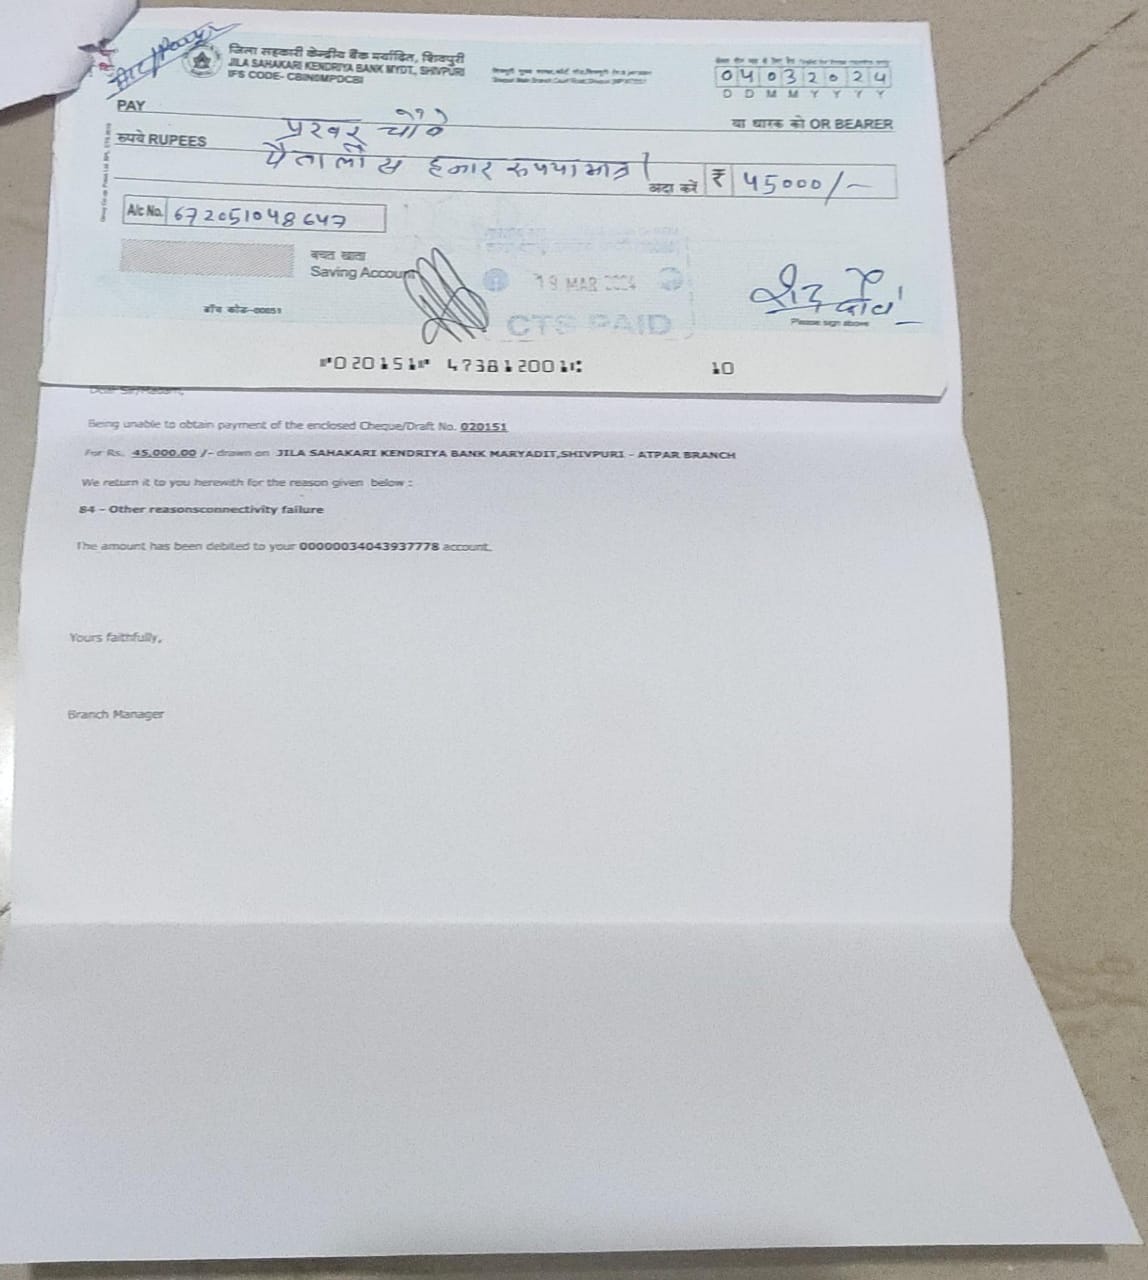 A/c Payee
जिला सहकारी केन्द्रीय बैंक मर्यादित, शिवपुरी
JILA SAHAKARI KENDRIYA BANK MYDT, SHIVPURI
IFS CODE- CBIN0MPDCBI
04032024
D D M M Y Y Y Y
PAY
प्रखर
या धारक को OR BEARER
रुपये RUPEES
पैतालीस हजार रुपया मात्र
अदा करें ₹ 45000/-
A/c No. 672051048647
बचत खाता
Saving Account
19 MAR 2024
CTS PAID
ब्राँच कोड-00051
Please sign above
⑈020151⑈ 473812001⑆ 10
Dear Sir/Madam,
Being unable to obtain payment of the enclosed Cheque/Draft No. 020151
For Rs. 45,000.00 /- drawn on JILA SAHAKARI KENDRIYA BANK MARYADIT,SHIVPURI - ATPAR BRANCH
We return it to you herewith for the reason given below :
84 - Other reasonsconnectivity failure
The amount has been debited to your 00000034043937778 account.
Yours faithfully,
Branch Manager